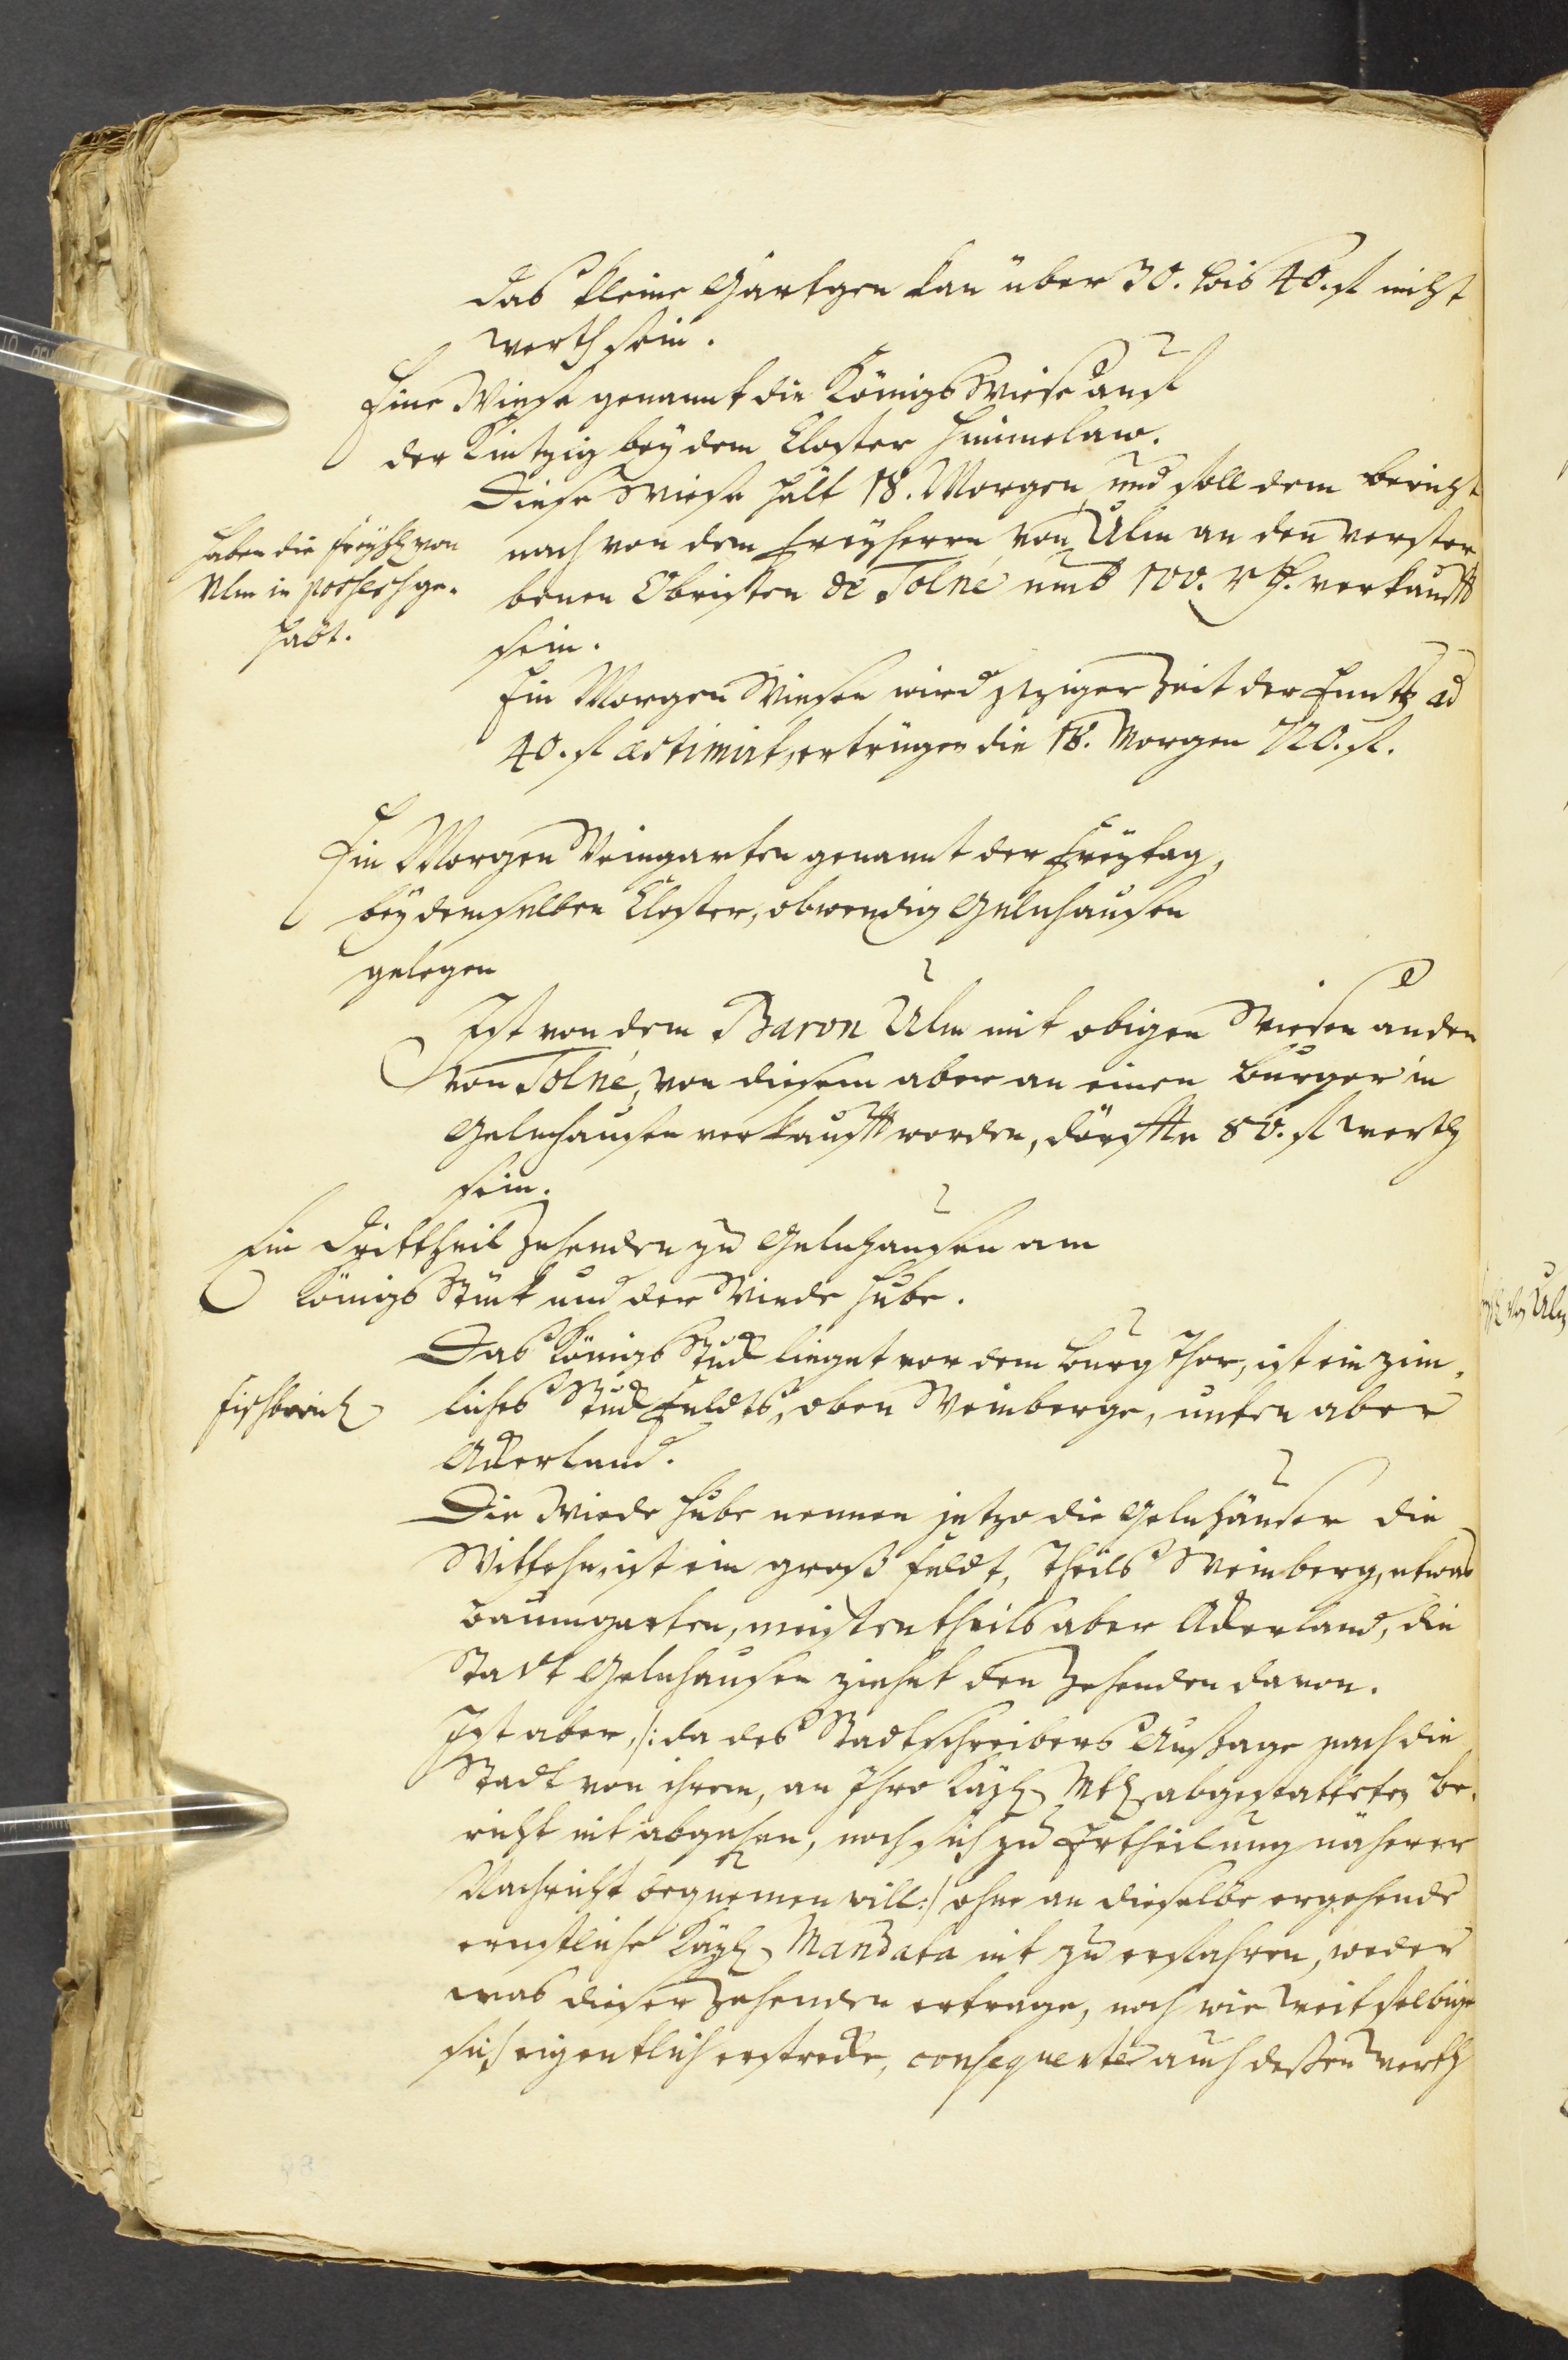 das kleine Gärtgen kan über 30. bis 40. fl nicht
werth sein.
Eine Wiese genannt die Königs Wiese auf
der Kintzig bey dem Closter Himmelaw.
Diese Wiese hält 18. Morgen und soll dem bericht
haben die Freyh. von
Ulm in possess ge-
habt.
nach von dem Freyherrn von Ulm an den verstor
benen Obristen de Tolné umb 100. rth. verkaufft
sein.
Ein Morgen Wiesen wird jeziger Zeit der ad
40. fl æstimirt, ertrügen die 18. Morgen 720. fl.
Ein Morgen Weingarten genannt der Freytag,
bey demselben Closter, obwendig Gelnhausen
gelegen
Ist von dem Baron Ulm mit obigen Wiesen an den
von Tolné, von diesem aber an einen Burger in
Gelnhausen verkaufft worden, dörffte 80. fl werth
sein.
Ein Drittheil Zehenden zu Gelnhausen am
Königs Stück und der Wiede Hube.
Das Königs Stück lieget vor dem Burg Thor, ist ein zim-
Fischborn
liches Stück Feldts, oben Weinberge, unten aber
Ackerland.
Die Wiede Hube nennen jetzo die Gelnhäuser die
ist ein groß Feldt, theils Weinberg, etwas
Baumgarten, meistentheils aber Ackerland, die
Statt Gelnhausen ziehet den Zehenden davon.
Ist aber, /: da des Stadtschreibers Aussage nach die
Stadt von ihrem, an Ihro Kayl. Mt. abgestatteten be-
richt nit abgehen, noch sich zu Ertheilung näherer
Nachricht bequemen will :/ ohne an dieselbe ergehende
ernstliche Kayl. Mandata nit zu erfahren, weder
was dieser Zehenden ertrage, noch wie weit selbige
sich eigentlich erstrecke, consequenter auch deßen werth